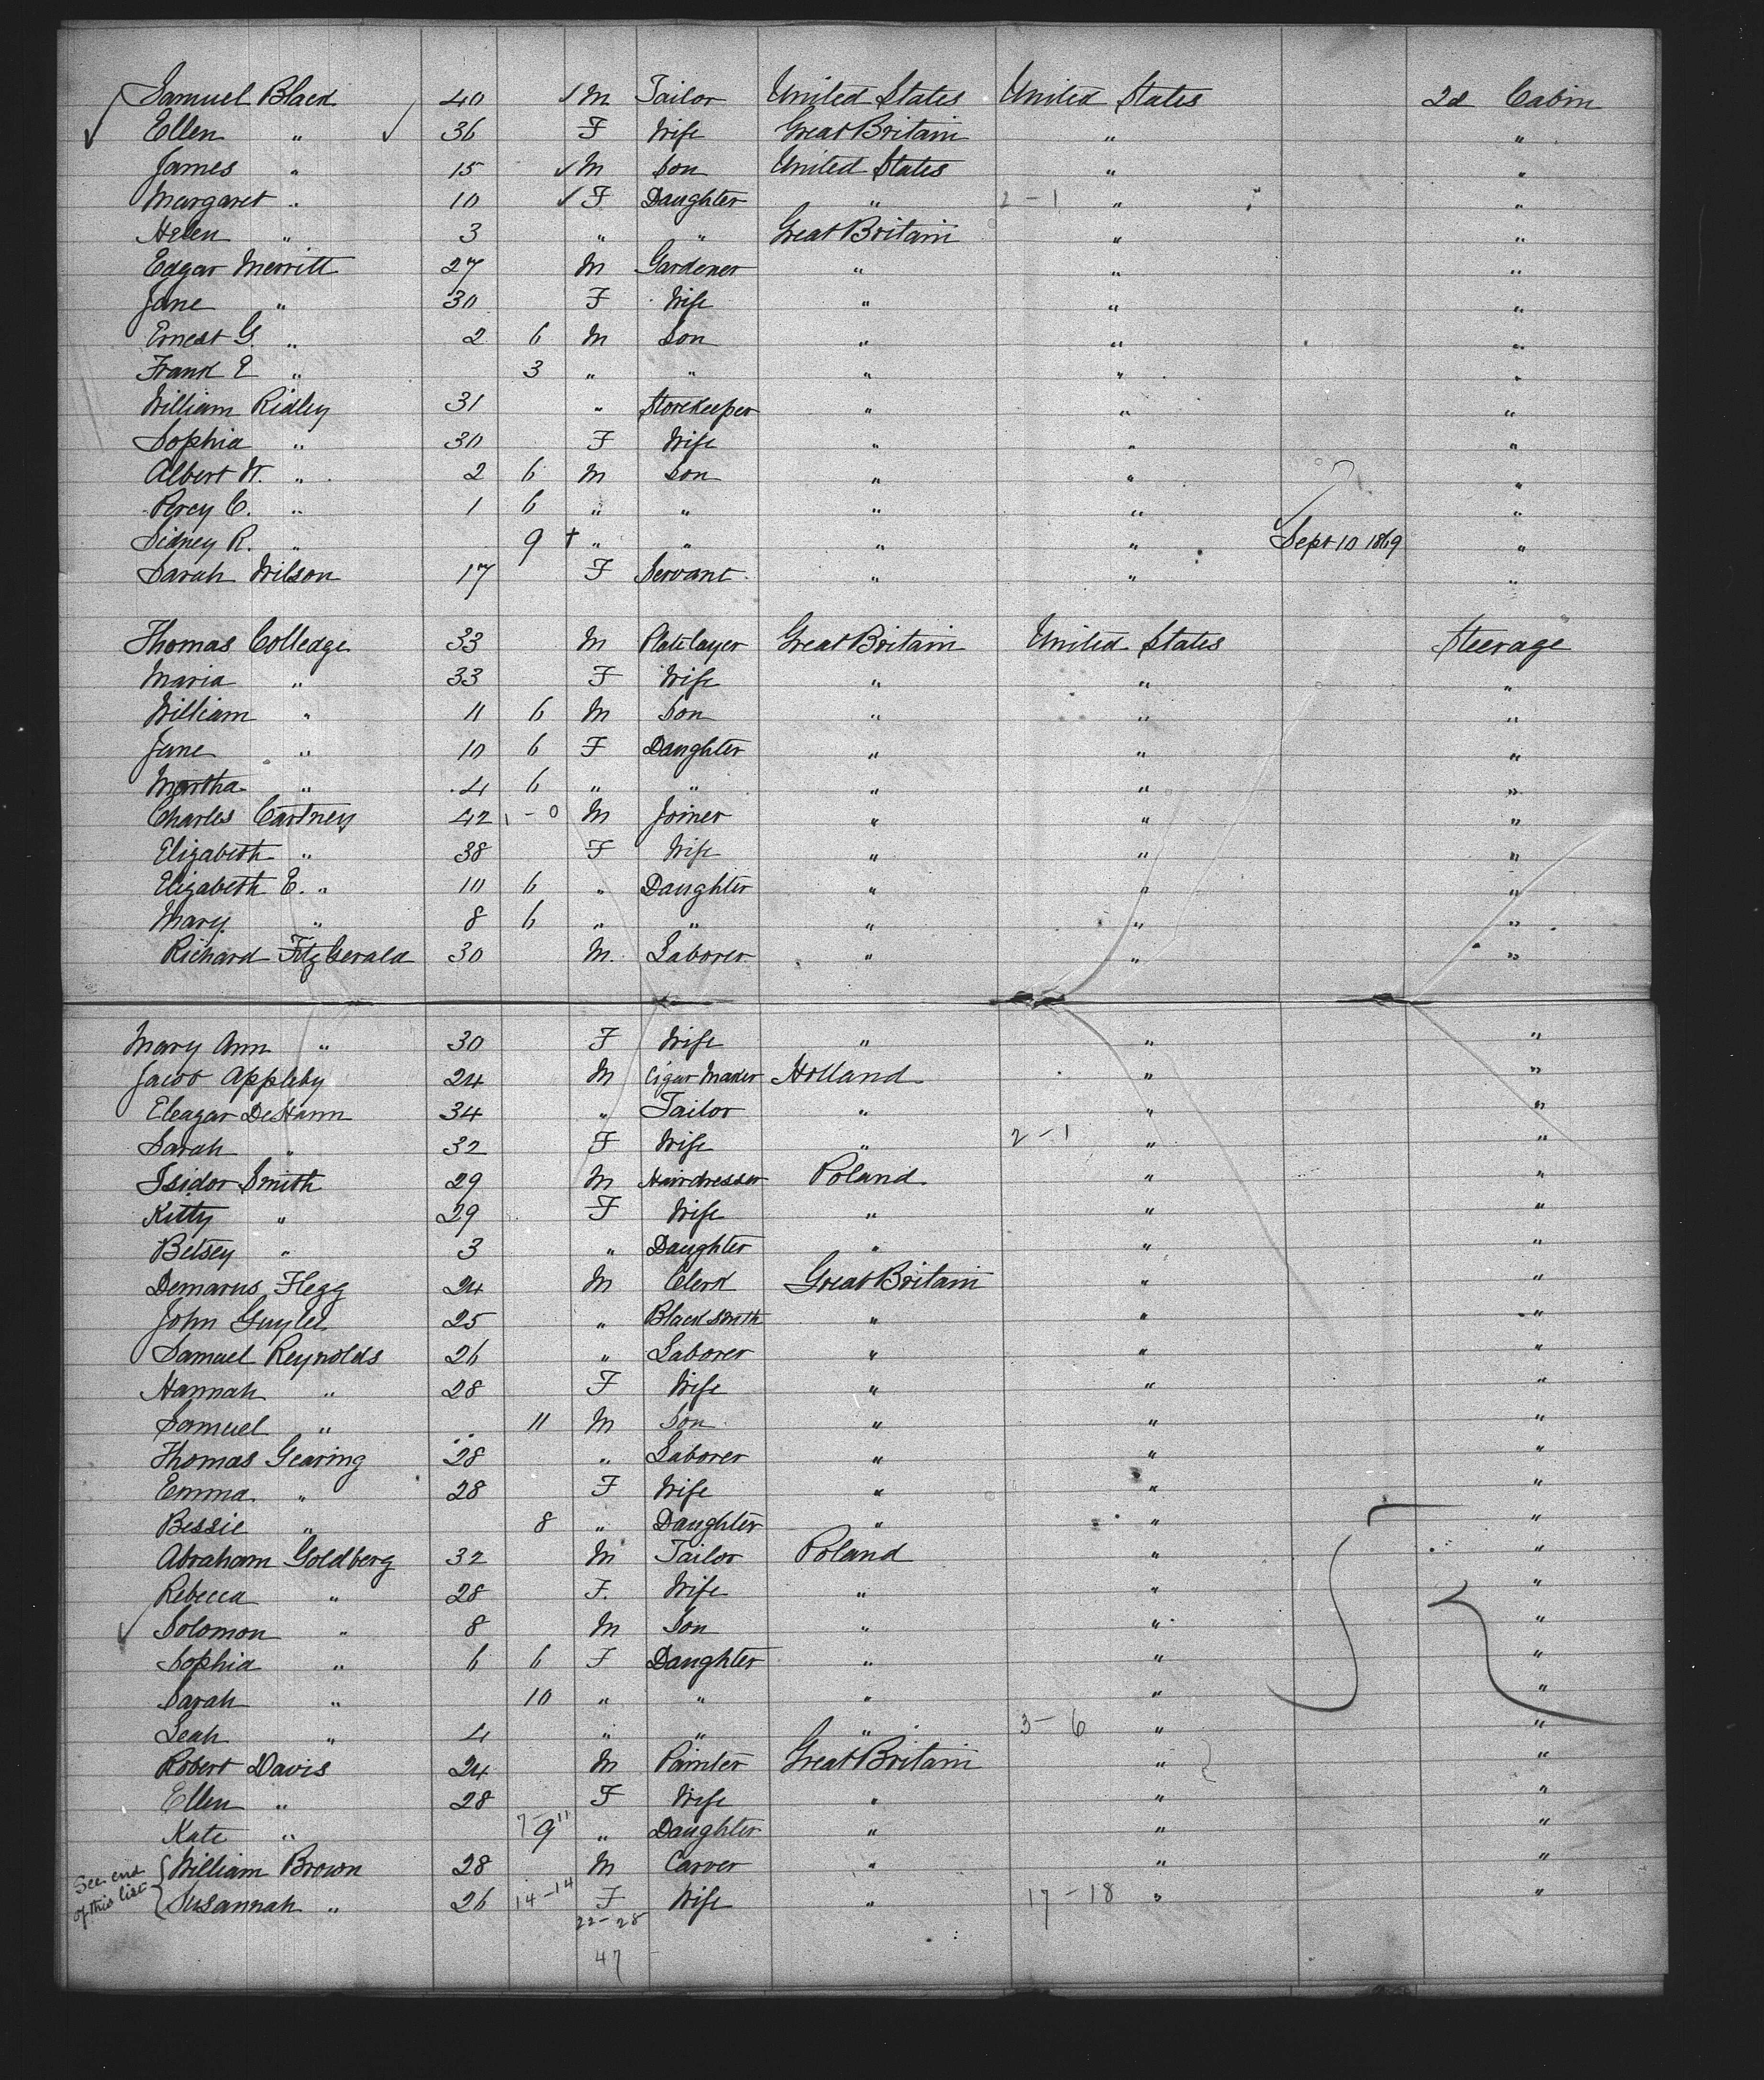 Samuel Black 40 M Tailor United States United States 2d Cabin
Ellen " 36 F Wife Great Britain " "
James " 15 M Son United States " "
Margaret " 10 F Daughter " 2-1 " "
Helen " 3 " " Great Britain " "
Edgar Merritt 27 M Gardener " " "
Jane " 30 F Wife " " "
Ernest G. " 2 6 M Son " " "
Frank E " 3 " " " " "
William Ridley 31 " Storekeeper " " "
Sophia " 30 F Wife " " "
Albert W. " 2 6 M Son " " "
Percy C. " 1 6 " " " " "
Sidney R. " 9 + " " " " Sept 10 1869 "
Sarah Wilson 17 F Servant " " "
Thomas Colledge 33 M Platelayer Great Britain United States Steerage
Maria " 33 F Wife " " "
William " 11 6 M Son " " "
Jane " 10 6 F Daughter " " "
Martha " 4 6 " " " " "
Charles Cartney 42 1-0 M Joiner " " "
Elizabeth " 38 F Wife " " "
Elizabeth E. " 10 6 " Daughter " " "
Mary " 8 6 " " " " "
Richard FitzGerald 30 M. Laborer " " "
Mary Ann " 30 F Wife " " "
Jacob Appleby 24 M Cigar Maker Holland " "
Eleazar DeHann 34 " Tailor " " "
Sarah " 32 F Wife " 2-1 " "
Isidor Smith 29 M Hairdresser Poland " "
Kitty " 29 F Wife " " "
Betsey " 3 " Daughter " " "
Demarus Flegg 24 M Clerk Great Britain " "
John 25 " Blacksmith " " "
Samuel Reynolds 26 " Laborer " " "
Hannah " 28 F Wife " " "
Samuel " 11 M Son " " "
Thomas Gearing 28 " Laborer " " "
Emma " 28 F Wife " " "
Bessie " 8 " Daughter " " "
Abraham Goldberg 32 M Tailor Poland " "
Rebecca " 28 F. Wife " " "
Solomon " 8 M Son " " "
Sophia " 6 6 F Daughter " " "
Sarah " 10 " " " " "
Leah " 4 " " " 3-6 " "
Robert Davis 24 M Painter Great Britain " "
Ellen " 28 F Wife " " "
Kate " 7-11 9 " Daughter " " "
See end of this list
William Brown 28 M Carver " " "
Susannah " 26 14-14 F Wife " 17-18 " "
22-25
47